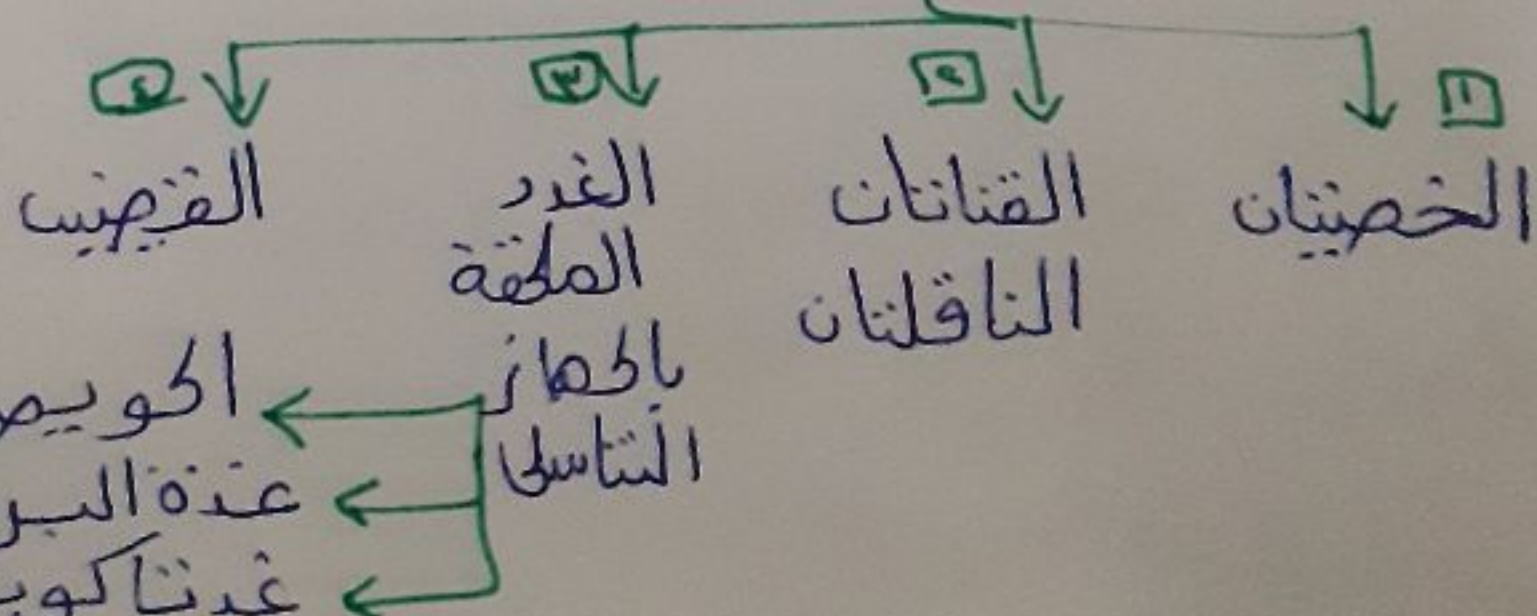 ١
الخصيتان
٢
القناتان
الناقلتان
٣
الغدد
الملحقة
بالجهاز
التناسلى
٤
القضيب
الحويص
غدة البر
غدتا كوب